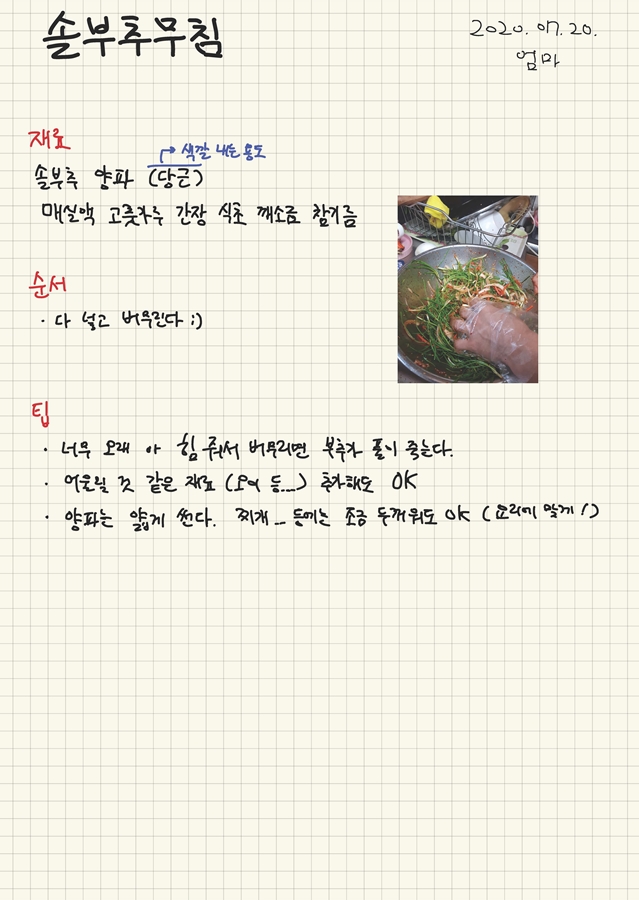 솔부추무침
2020. 07. 20.
엄마
재료
색깔 내는 용도
솔부추 양파 (당근)
매실액 고춧가루 간장 식초 깨소금 참기름
순서
· 다 넣고 버무린다 ;)
팁
· 너무 오래 아 힘 줘서 버무리면 부추가 풀이 죽는다.
· 어울릴 것 같은 재료 (오이 등...) 추가해도 OK
· 양파는 얇게 썬다. 찌개... 등에는 조금 두꺼워도 OK (요리에 맞게!)